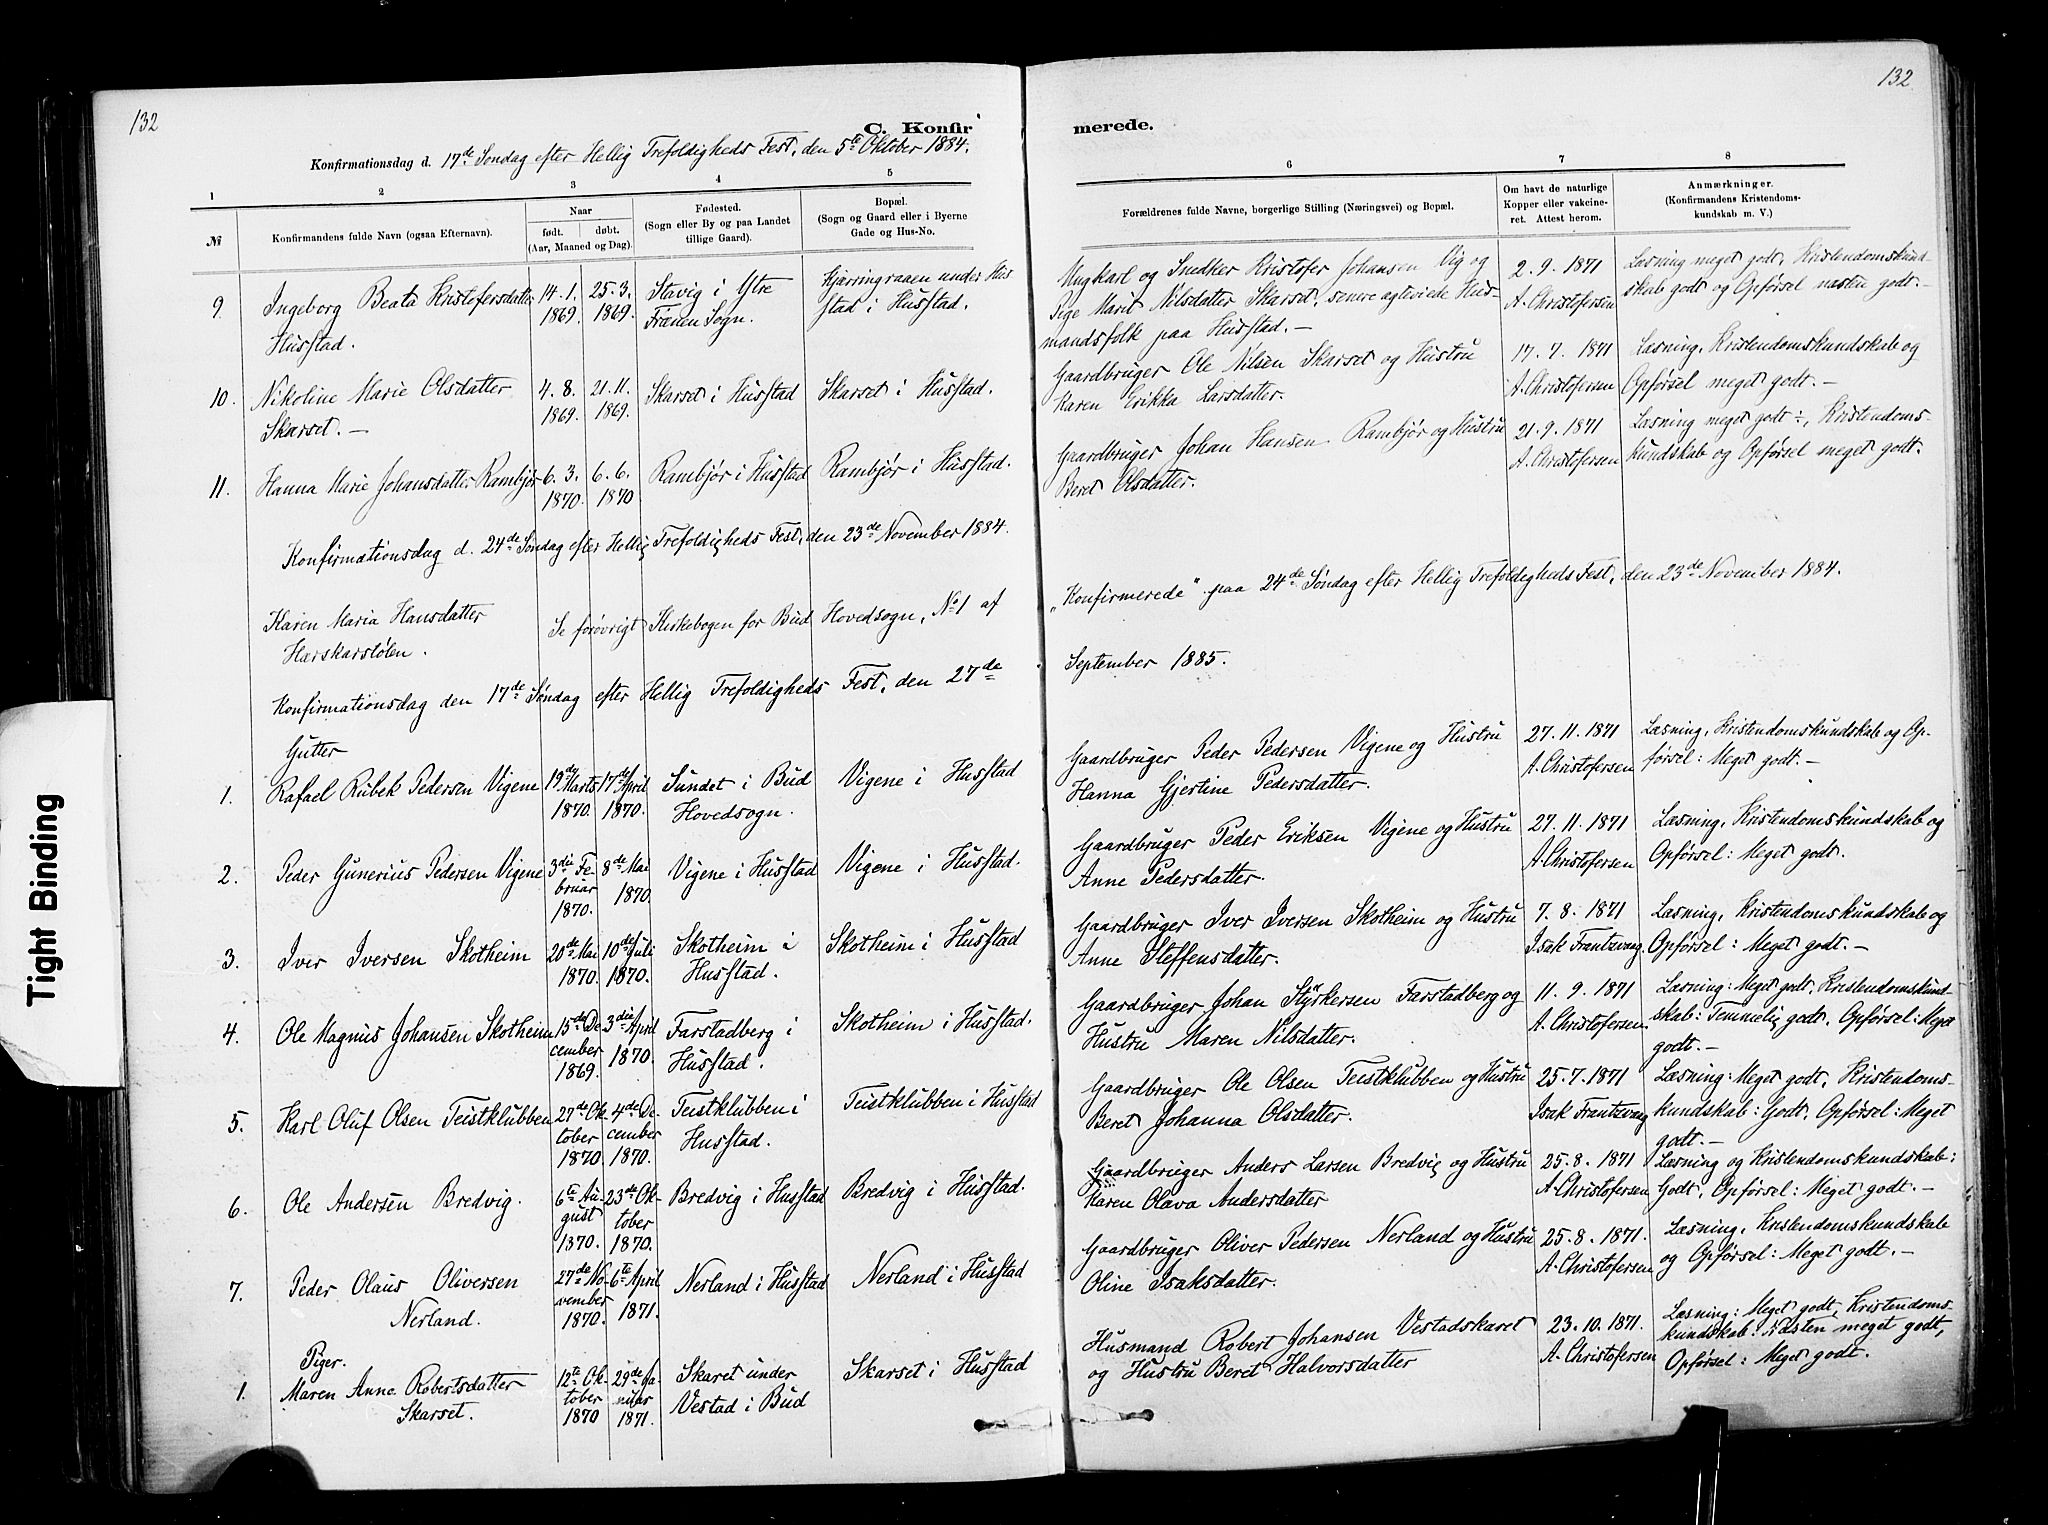 132
132
C. Konfir
merede.
Konfirmationsdag d. 17de Søndag efter Hellig Trefoldigheds Fest, den 5te Oktober 1884.
1
2
3
4
5
6
7
8
№
Konfirmandens fulde Navn (ogsaa Efternavn).
Naar
født. døbt.
(Aar, Maaned og Dag).
Fødested.
(Sogn eller By og paa Landet
tillige Gaard).
Bopæl.
(Sogn og Gaard eller i Byerne
Gade og Hus-No.
Forældrenes fulde Navne, borgerlige Stilling (Næringsvei) og Bopæl.
Om havt de naturlige
Kopper eller vakcine-
ret. Attest herom.
Anmærkninger.
(Konfirmandens Kristendoms-
kundskab m. V.)
9.
Ingeborg Beata Kristofersdatter
Husstad.
14. 1.
1869.
25. 3.
1869.
Stavig i Ytre
Frænen Sogn.
Hjærringraaen under Hus
stad i Husstad.
Ungkarl og Snedker Kristofer Johansen Vig og
Pige Marit Nilsdatter Skarset, senere agteviede Hus-
mandsfolk paa Husstad.–
2. 9. 1871
A. Christofersen
Læsning meget godt, Kristendomskund-
skab godt og Opførsel næsten godt.–
10.
Nikoline Marie Olsdatter
Skarset.–
4. 8.
1869.
21. 11.
1869.
Skarset i Husstad
Skarset i Husstad.
Gaardbruger Ole Nilsen Skarset og Hustru
Karen Erikka Larsdatter.
17. 7. 1871
A. Christofersen
Læsning, Kristendomskundskab og
Opførsel meget godt.–
11.
Hanna Marie Johansdatter Rambjør
6. 3.
1870.
6. 6.
1870
Rambjør i Husstad
Rambjør i Husstad.
Gaardbruger Johan Hansen Rambjør og Hustru
Beret Olsdatter.
21. 9. 1871
A. Christofersen
Læsning meget godt ÷, Kristendoms-
kundskab og Opførsel meget godt.
Konfirmationsdag d. 24de Søndag efter Hellig Trefoldigheds Fest, den 23de November 1884.
Karen Maria Hansdatter
Harskarstølen.
Se forøvrigt Kirkebogen for Bud Hovedsogn, No 1 af
„Konfirmerede" paa 24de Søndag efter Hellig Trefoldigheds Fest, den 23de November 1884.
Konfirmationsdag den 17de Søndag efter Hellig Trefoldigheds Fest, den 27de
September 1885.
Gutter
1.
Rafael Rubek Pedersen Vigene
19de Marts
1870.
17de April
1870.
Sundet i Bud
Hovedsogn.
Vigene i Husstad
Gaardbruger Peder Pedersen Vigene og Hustru
Hanna Gjertine Pedersdatter.
27. 11. 1871
A. Christofersen
Læsning, Kristendomskundskab og Op-
førsel: Meget godt.–
2.
Peder Gunerius Pedersen Vigene
3die Fe-
bruar
1870.
8de Mai
1870.
Vigene i Husstad
Vigene i Husstad.
Gaardbruger Peder Eriksen Vigene og Hustru
Anne Pedersdatter.
27. 11. 1871
A. Christofersen
Læsning, Kristendomskundskab og
Opførsel: Meget godt.
3.
Iver Iversen Skotheim
20de Mai
1870.
10de Juli
1870.
Skotheim i
Husstad.
Skotheim i Husstad
Gaardbruger Iver Iversen Skotheim og Hustru
Anne Steffensdatter.
7. 8. 1871
Isak Frantzvaag
Læsning, Kristendomskundskab og
Opførsel: Meget godt.–
4.
Ole Magnus Johansen Skotheim
15de De-
cember
1869.
3die April
1870.
Farstadberg i
Husstad.
Skotheim i Husstad.
Gaardbruger Johan Styrkersen Farstadberg og
Hustru Maren Nilsdatter.
11. 9. 1871
A. Christofersen
Læsning: Meget godt, Kristendomskund-
skab: Temmelig godt, Opførsel: Meget
godt.–
5.
Karl Oluf Olsen Teistklubben
27de Ok-
tober
1870
4de De-
cember
1870.
Teistklubben i
Husstad.
Teistklubben i Husstad
Gaardbruger Ole Olsen Teistklubben og Hustru
Beret Johanna Olsdatter.
25. 7. 1871
Isak Frantzvaag
Læsning: Meget godt, Kristendoms-
kundskab: Godt, Opførsel: Meget
godt.–
6.
Ole Andersen Bredvig.
6te Au-
gust
1870.
23de Ok-
tober
1870.
Bredvig i Husstad
Bredvig i Husstad.
Gaardbruger Anders Larsen Bredvig og Hustru
Karen Olava Andersdatter
25. 8. 1871
A. Christofersen
Læsning og Kristendomskundskab:
Godt, Opførsel: Meget godt.–
7.
Peder Olaus Oliversen
Nerland.
27de No-
vember
1870.
6te April
1871.
Nerland i Husstad
Nerland i Husstad
Gaardbruger Oliver Pedersen Nerland og Hustru
Oline Isaksdatter.
25. 8. 1871.
A. Christofersen
Læsning, Kristendomskundskab
og Opførsel: Meget godt.–
Piger.
1.
Maren Anne Robertsdatter
Skarset.
12te Ok-
tober
1870
29de Ja-
nuar
1871.
Skaret under
Vestad i Bud
Skarset i Husstad
Husmand Robert Johansen Vestadskaret
og Hustru Beret Halvorsdatter
23. 10. 1871.
A. Christofersen
Læsning: Meget godt, Kristendoms-
kundskab: Næsten meget godt,
Opførsel: Meget godt.
Tight Binding